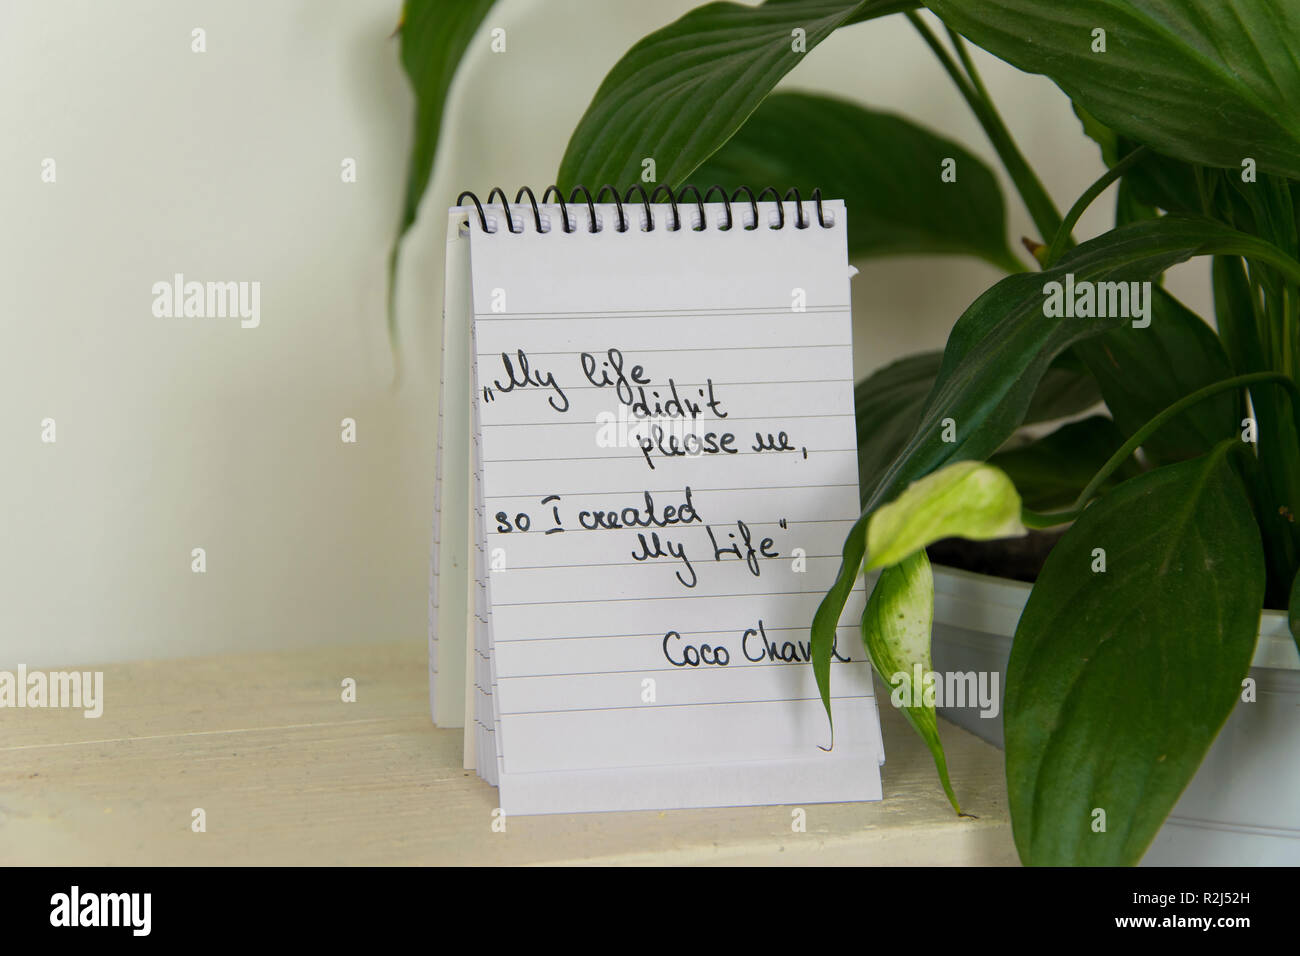 „My life
didn't
please me,
so I created
My Life"
Coco Chanel
alamy
alamy
alamy
alamy
Image ID: R2J52H
www.alamy.com